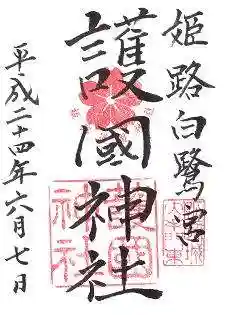 姫路白鷺宮
護國神社
平成二十四年六月七日